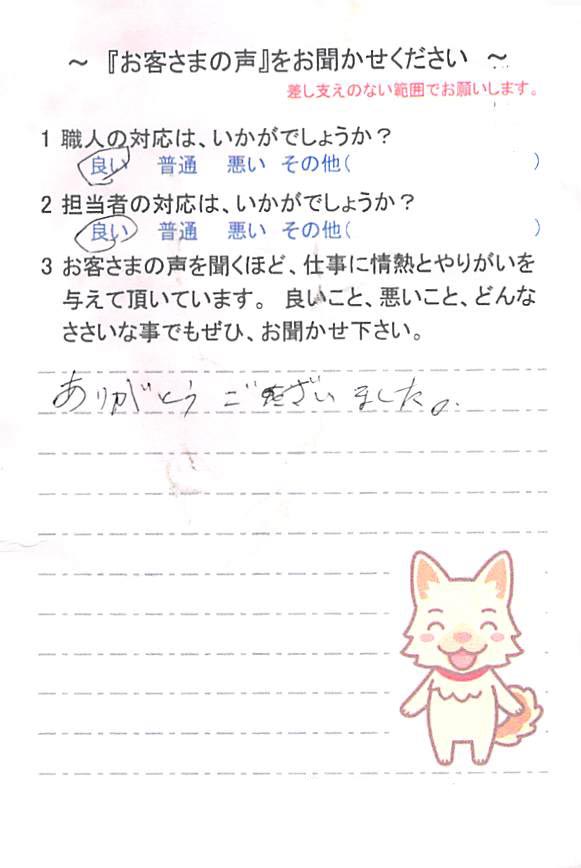 ～ 『お客さまの声』をお聞かせください ～
差し支えのない範囲でお願いします。
1 職人の対応は、いかがでしょうか？
良い 普通 悪い その他( )
2 担当者の対応は、いかがでしょうか？
良い 普通 悪い その他( )
3 お客さまの声を聞くほど、仕事に情熱とやりがいを
与えて頂いています。 良いこと、悪いこと、どんな
ささいな事でもぜひ、お聞かせ下さい。
ありがとうございました。